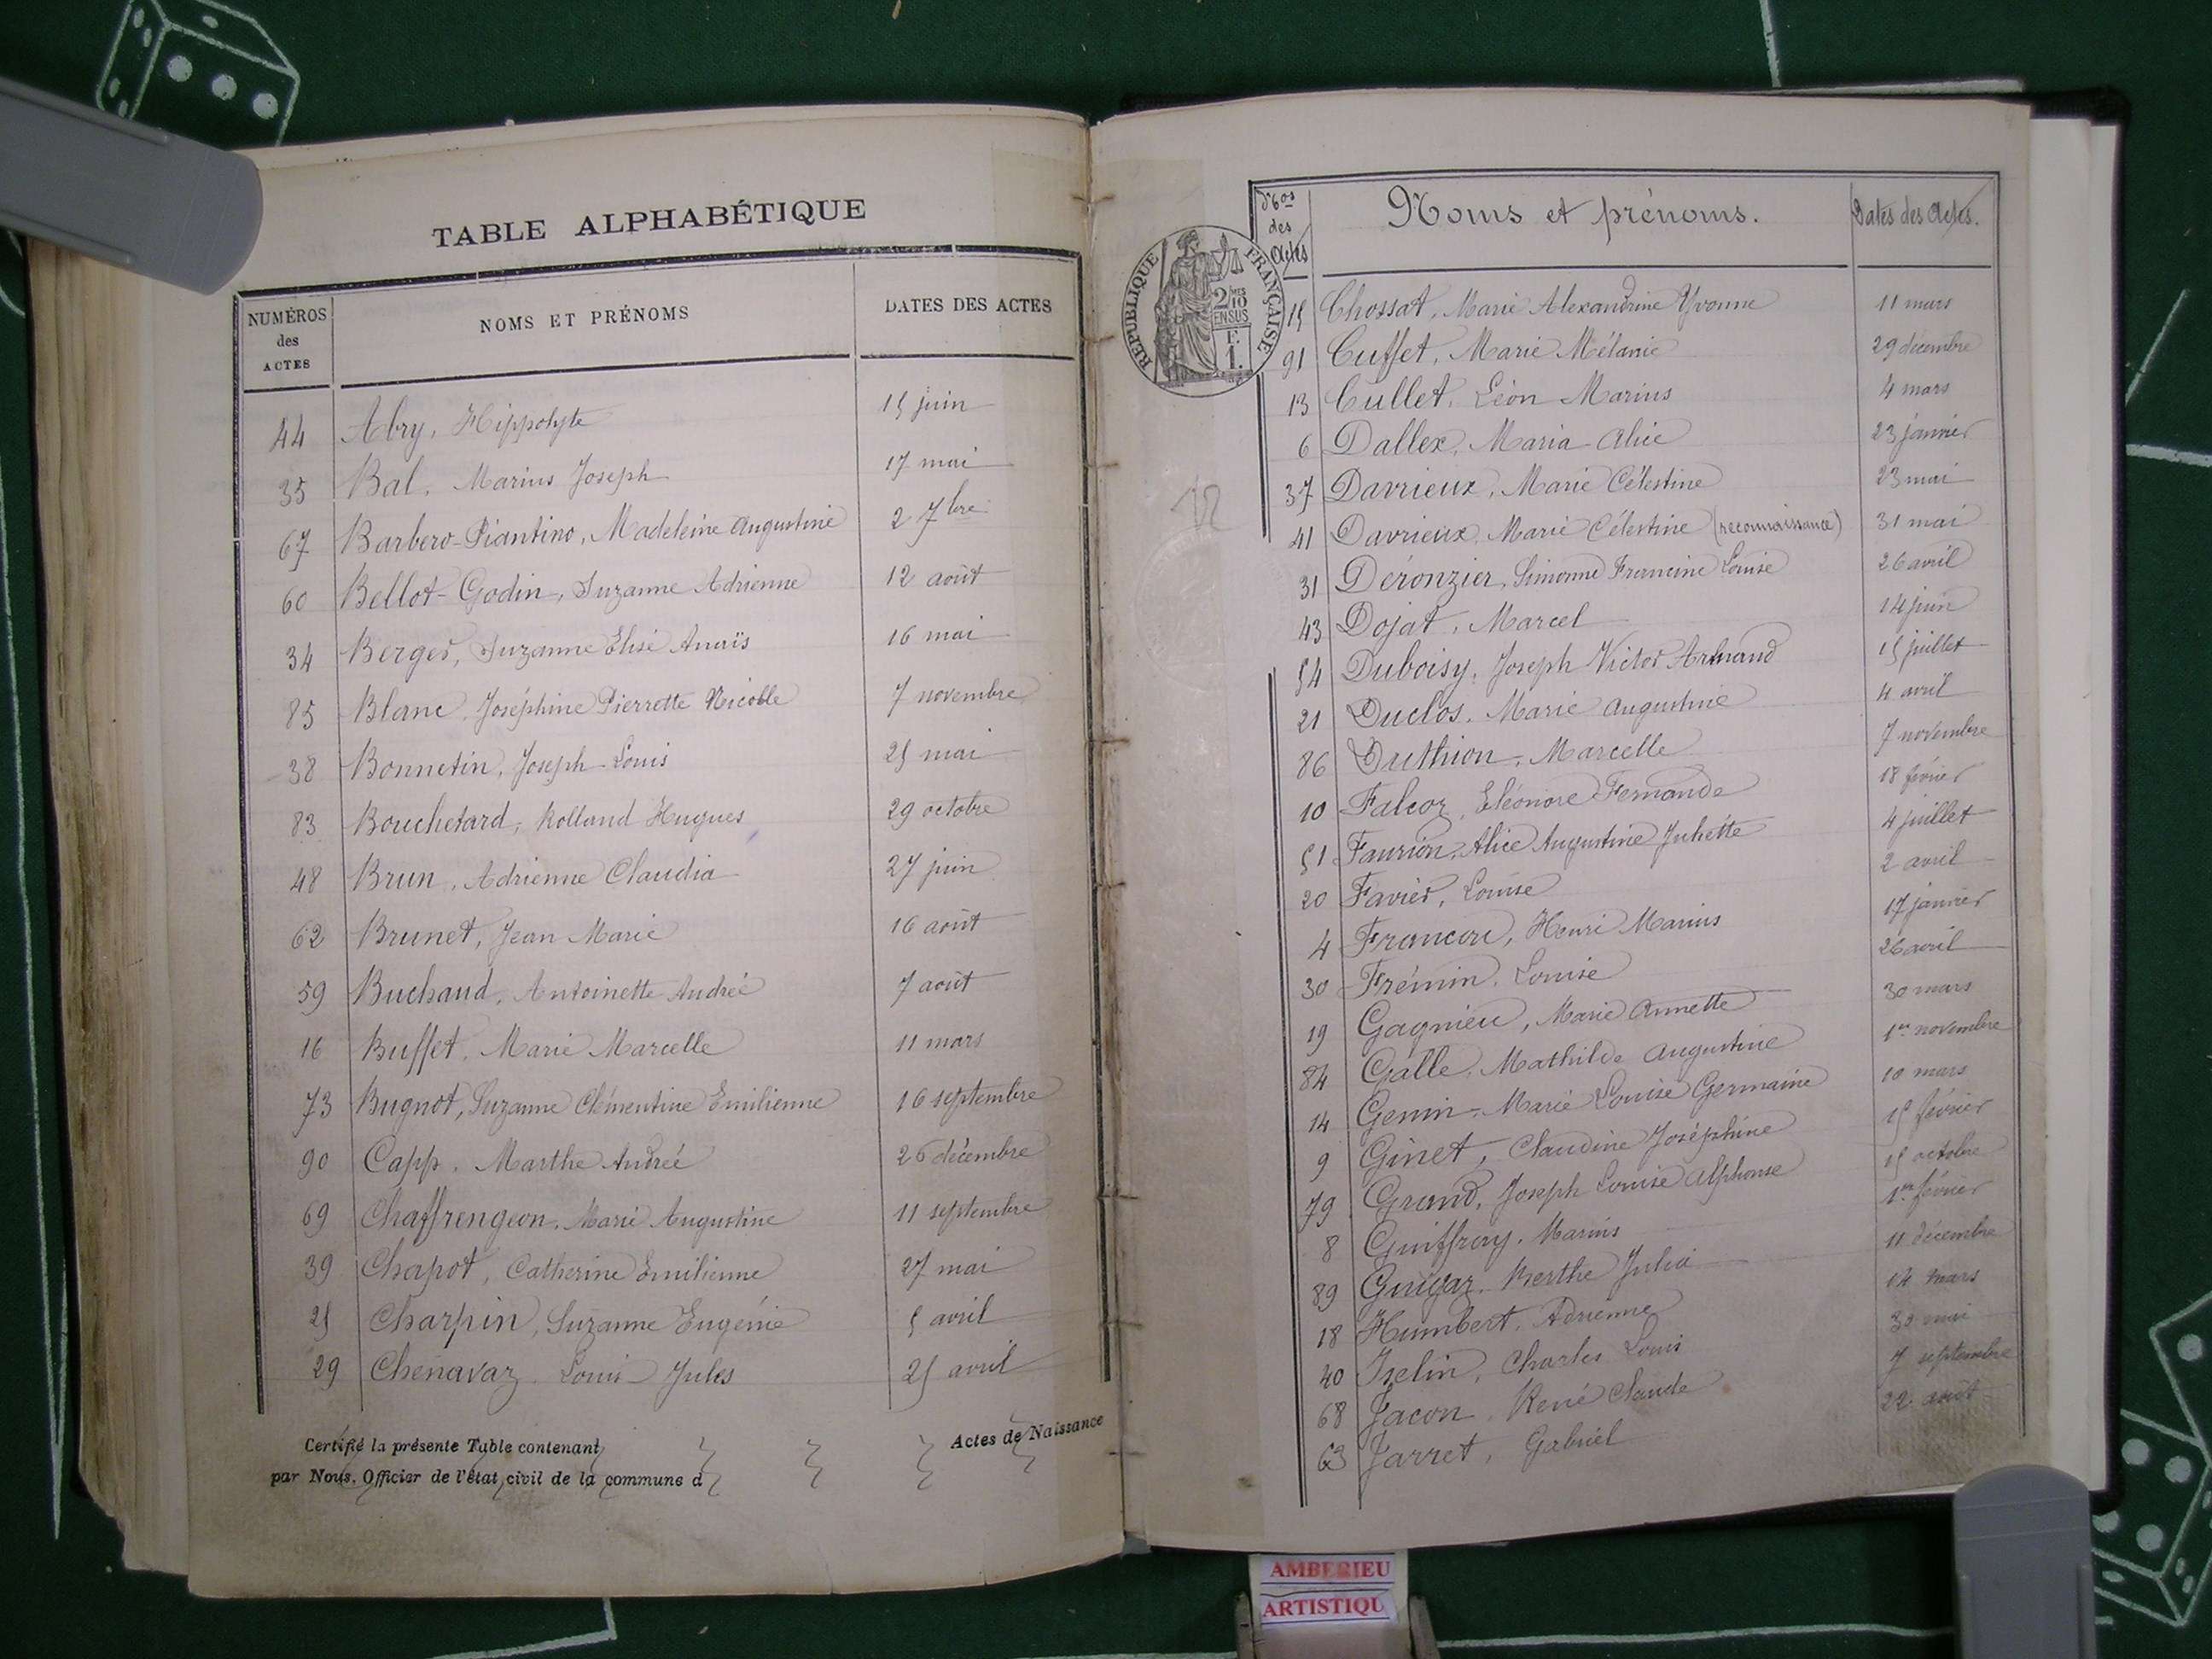 TABLE ALPHABÉTIQUE
NUMÉROS des ACTES NOMS ET PRÉNOMS DATES DES ACTES
44 Abry, Hippolyte 15 juin
35 Bal, Marius Joseph 17 mai
67 Barbero-Piantino, Madeleine Augustine 2 7bre
60 Bellot-Godin, Suzanne Adrienne 12 août
34 Berger, Suzanne Elise Anaïs 16 mai
85 Blanc, Joséphine Pierrette Nicolle 7 novembre
38 Bonnetin, Joseph Louis 25 mai
83 Bouchetard, Rolland Hugues 29 octobre
48 Brun, Adrienne Claudia 27 juin
62 Brunet, Jean Marie 16 août
59 Buchaud, Antoinette Andrée 7 août
16 Buffet, Marie Marcelle 11 mars
73 Bugnot, Suzanne Clémentine Emilienne 16 septembre
90 Capp, Marthe Andrée 26 décembre
69 Chaffrengeon, Marie Augustine 11 septembre
39 Chapot, Catherine Emilienne 27 mai
25 Charpin, Suzanne Eugénie 5 avril
29 Chenavaz Louis Jules 25 avril
Certifié la présente Table contenant Actes de Naissance
par Nous, Officier de l'état civil de la commune d
Nos des Actes Noms et prénoms. Dates des Actes.
RÉPUBLIQUE FRANÇAISE
2/10MES
EN SUS
F. 1.
15 Chossat, Marie Alexandrine Yvonne 11 mars
91 Cuffet, Marie Mélanie 29 décembre
13 Cullet, Léon Marius 4 mars
6 Dallex, Maria Alice 23 janvier
37 Davrieux, Marie Célestine 23 mai
41 Davrieux, Marie Célestine (reconnaissance) 31 mai
31 Déronzier, Simonne Francine Louise 26 avril
43 Dojat, Marcel 14 juin
54 Duboisy, Joseph Victor Armand 15 juillet
21 Duclos, Marie Augustine 4 avril
86 Duthion, Marcelle 7 novembre
10 Falcoz, Eléonore Fernande 18 février
51 Faurion, Alice Augustine Juliette 4 juillet
20 Favier, Louise 2 avril
4 Francon, Henri Marius 17 janvier
30 Frémin, Louise 26 avril
19 Gagnieu, Marie Annette 30 mars
84 Galle, Mathilde Augustine 1er novembre
14 Genin, Marie Louise Germaine 10 mars
9 Ginet, Claudine Joséphine 15 février
79 Grand, Joseph Louise Alphonse 15 octobre
8 Guiffray, Marius 1er février
89 Guigaz, Berthe Julia 11 décembre
18 Humbert, Adrienne mars
40 Iselin, Charles Louis 30 mai
68 Jacon, René Claude 7 septembre
63 Jarret, Gabriel 22 août
AMBERIEU
ARTISTIQU